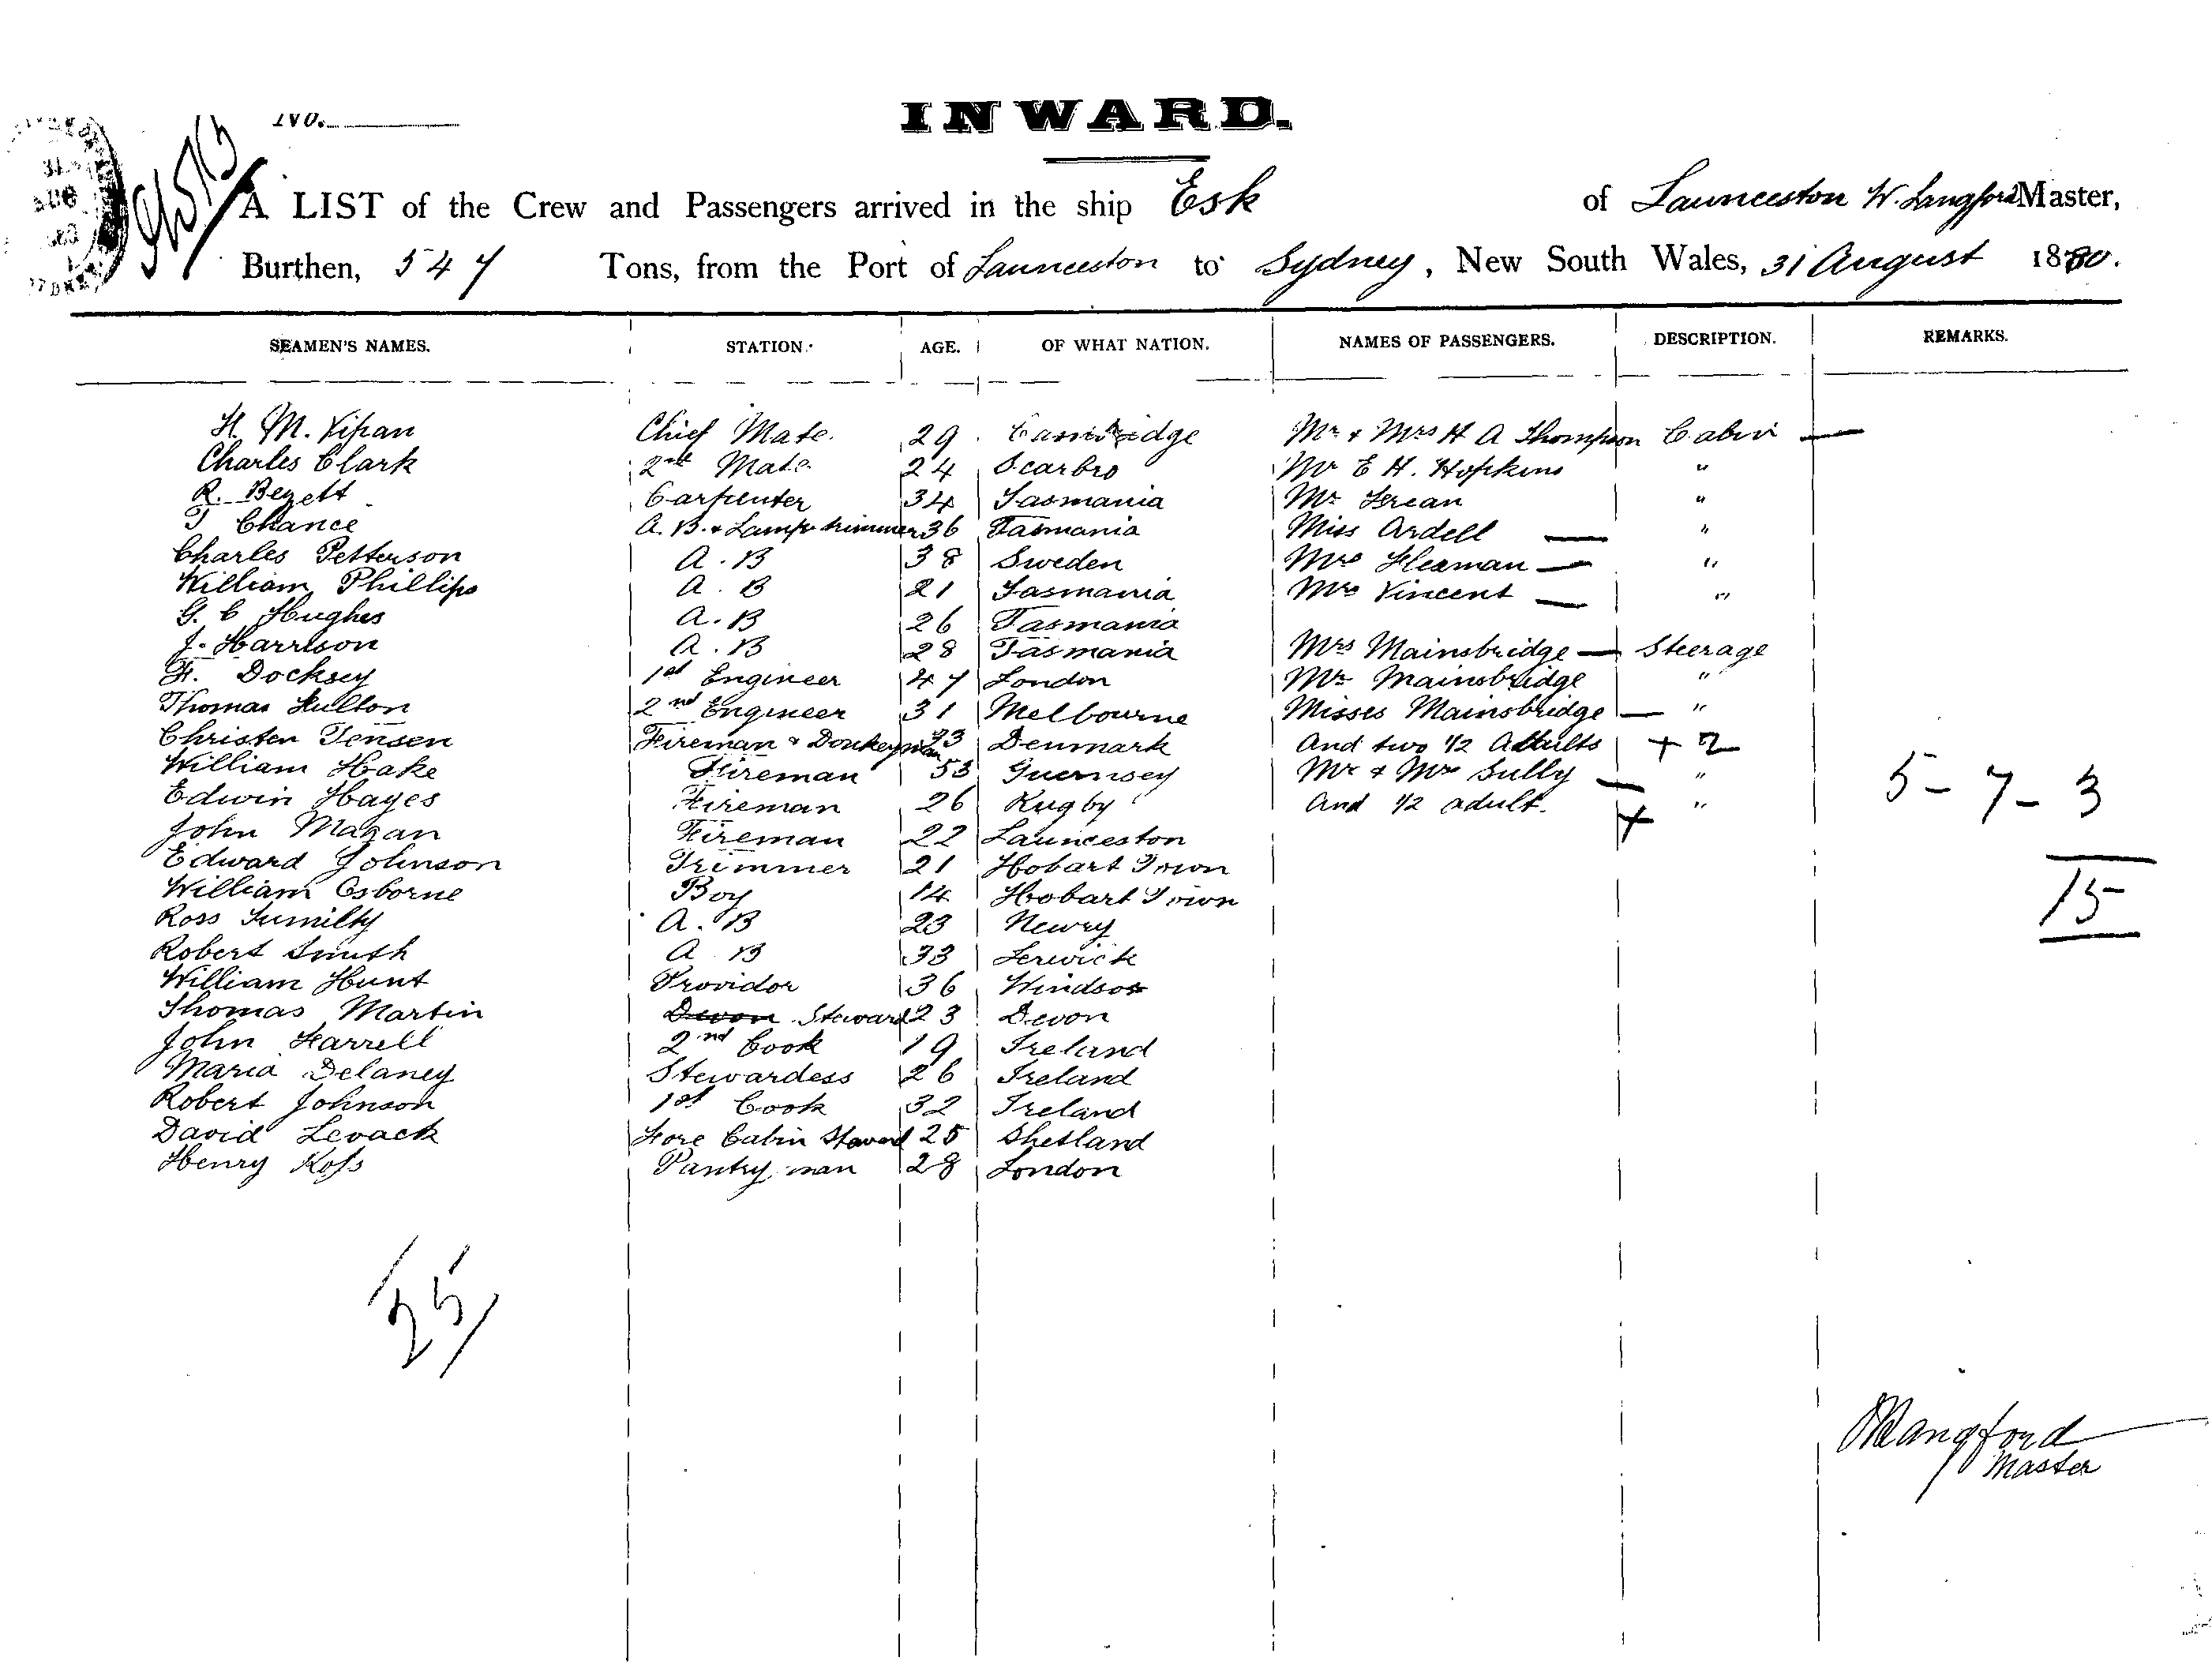 No.
INWARD.
A LIST of the Crew and Passengers arrived in the ship Esk of Launceston W. Langford Master,
Burthen, 547 Tons, from the Port of Launceston to Sydney, New South Wales, 31 August 1880.
SEAMEN'S NAMES. STATION. AGE. OF WHAT NATION. NAMES OF PASSENGERS. DESCRIPTION. REMARKS.
H. M. Vipan Chief Mate 29 Cambridge Mr & Mrs H A Thompson Cabin —
Charles Clark 2nd Mate 24 Scarbro Mr E H. Hopkins "
R. Bezett Carpenter 34 Tasmania Mr "
T Chance A. B. & Lamp trimmer 36 Tasmania Miss Ardell — "
Charles Petterson A. B 38 Sweden Mrs — "
William Phillips A. B 21 Tasmania Mrs Vincent — "
G. C Hughes A. B 26 Tasmania
J. Harrison A. B 28 Tasmania Mrs Mainsbridge — Steerage
F. Docksey 1st Engineer 47 London Mr Mainsbridge "
Thomas 2nd Engineer 31 Melbourne Misses Mainsbridge — "
Christen Jensen Fireman & Donkeyman 33 Denmark And two 1/2 Adults + 2
William Hake Fireman 53 Guernsey Mr & Mrs Sully — "
Edwin Hayes Fireman 26 Rugby And 1/2 adult + " 5 - 7 - 3
John Magan Fireman 22 Launceston
Edward Johnson Trimmer 21 Hobart Town
William Osborne Boy 14 Hobart Town 15
Ross A. B 23 Newry
Robert Smith A B 33 Lerwick
William Hunt Providor 36 Windsor
Thomas Martin Devon Steward 23 Devon
John Farrell 2nd Cook 19 Ireland
Maria Delaney Stewardess 26 Ireland
Robert Johnson 1st Cook 32 Ireland
David Levack Fore Cabin Steward 25 Shetland
Henry Ross Pantry man 28 London
25
WLangford
Master